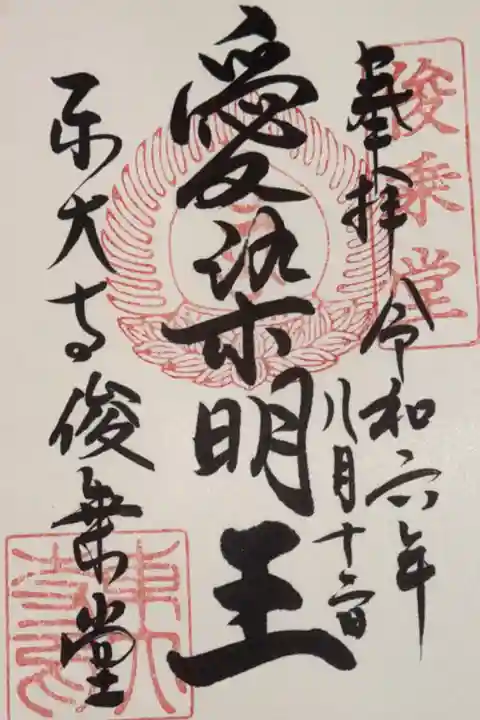 俊乗堂
奉拝 令和六年
八月十二日
愛染明王
東大寺俊乗堂